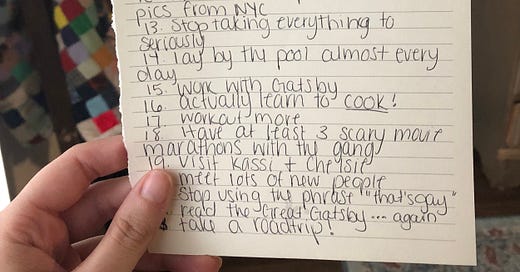 pics from NYC
13. Stop taking everything to
seriously
14. Lay by the pool almost every
day
15. Work with Gatsby
16. actually learn to cook!
17. workout more
18. Have at least 3 scary movie
marathons with the gang
19. Visit Kassi + Chelsie
meet lots of new people
stop using the phrase "that's gay"
read the Great Gatsby... again
take a roadtrip!